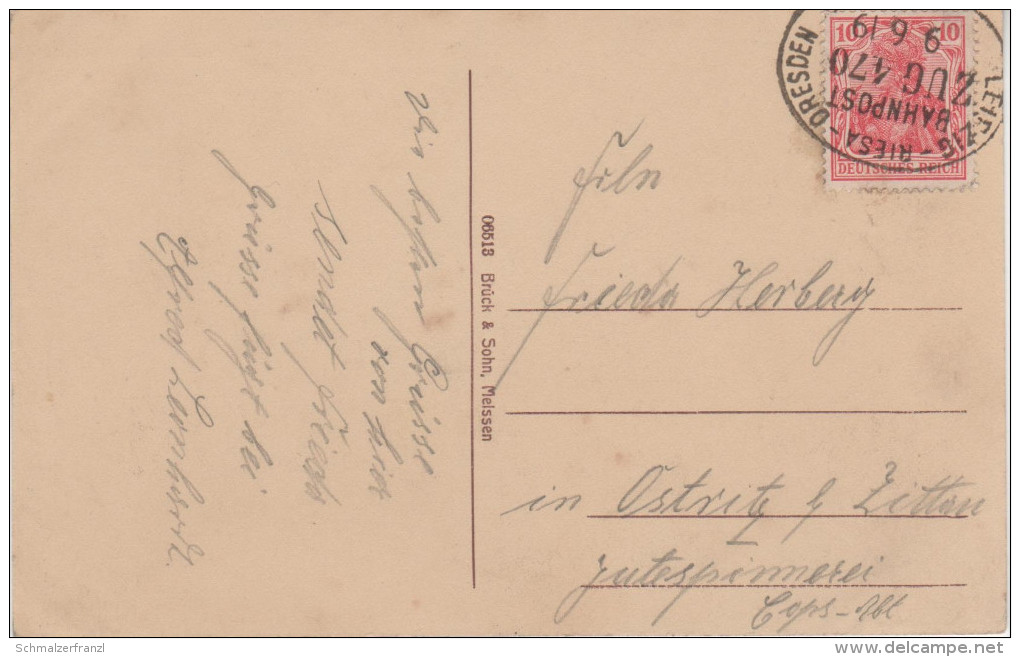 Die besten Grüsse
von hier
sendet Frieda
Grüsse fügt bei
Alfred Leonhardt.
06513 Brück & Sohn, Meissen
10 10
DEUTSCHES REICH
LEIPZIG - RIESA - DRESDEN
BAHNPOST
ZUG 470
9 6 19
Frln
Frieda Herberg
in Ostritz b Zittau
Jutespinnerei
Cops-Abt
Schmalzerfranzl
www.delcampe.net